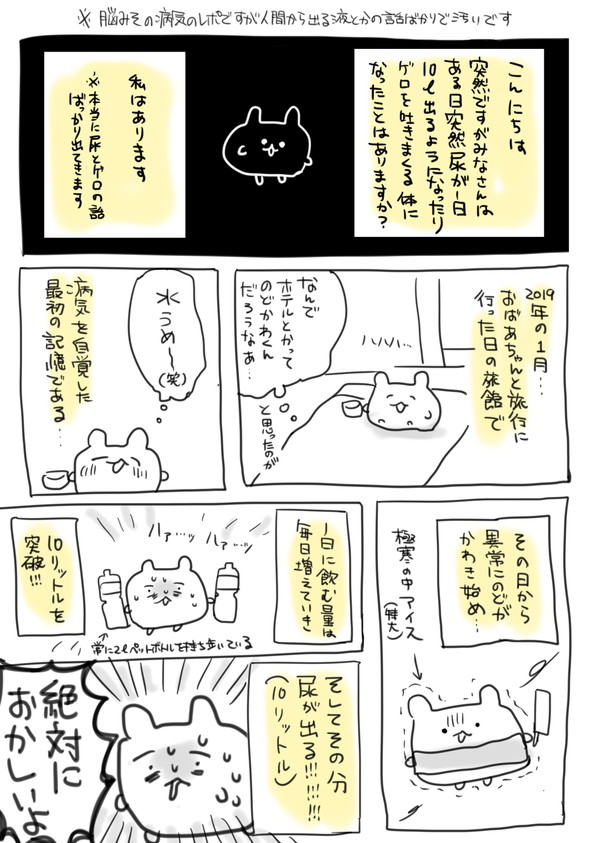 ※ 脳みその病気のレポですが人間から出る液とかの話ばかりで汚いです
こんにちは
突然ですがみなさんは
ある日突然尿が一日
10ℓ出るようになったり
ゲロを吐きまくる体に
なったことはありますか?
私はあります
※本当に尿とゲロの話
ばっかり出てきます
2019年の1月…
おばあちゃんと旅行に
行った日の旅館で
ハハハ…
なんで
ホテルとかって
のどかわくん
だろうなあ…
と思ったのが
水うめ〜(笑)
病気を自覚した
最初の記憶である…
その日から
異常にのどが
かわき始め…
極寒の中アイス
(特大)
一日に飲む量は
毎日増えていき
ハァッ…ハァ…ッ
常に2ℓペットボトルを持ち歩いている
10リットルを
突破!!!
そしてその分
尿が出る!!!!!!
(10リットル)
絶対に
おかしいよ